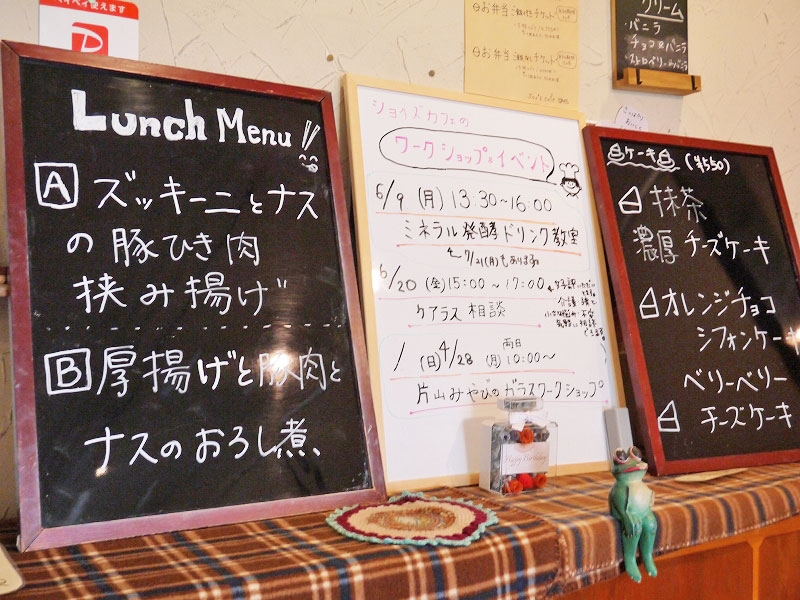 ペイペイ使えます
Lunch Menu
A ズッキーニとナス
の豚ひき肉
挟み揚げ
B 厚揚げと豚肉と
ナスのおろし煮、
お弁当
お弁当
ショイズカフェの
ワークショップ&イベント
6/9 (月) 13:30~16:00
ミネラル発酵ドリンク教室
7/21(月)もあります
6/20 (金) 15:00~17:00
ケアラス相談
(日)4/28 (月) 両日 10:00~
片山みやびのガラスワークショップ
Happy Birthday
クリーム
・バニラ
チョコ&バニラ
・ストロベリー&バニラ
ケーキ (¥550)
抹茶
濃厚チーズケーキ
オレンジチョコ
シフォンケーキ
ベリーベリー
チーズケーキ